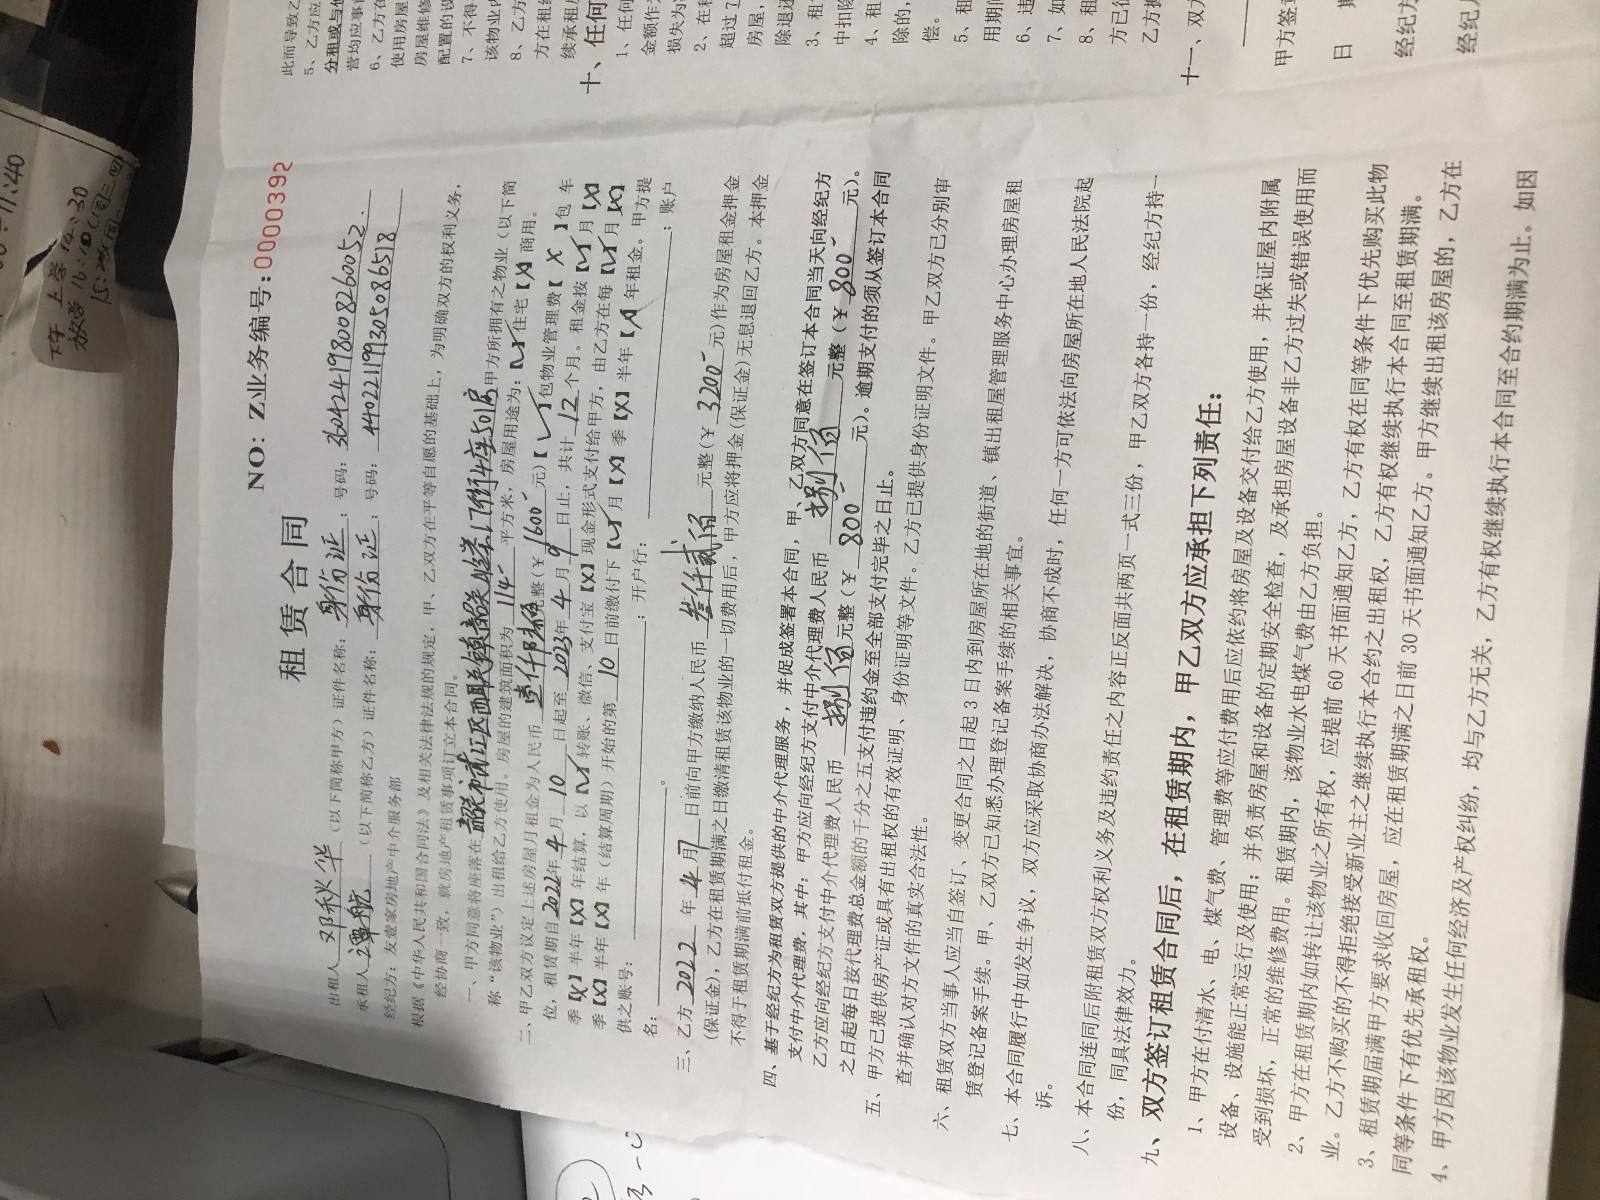 NO: Z业务编号:00000392
租 赁 合 同
出租人 邓秋华 (以下简称甲方) 证件名称: 身份证 ; 号码: 360424198008260052.
承租人 谭航 (以下简称乙方) 证件名称: 身份证 ; 号码: 440221199305086518
经纪方: 友壹家房地产中介服务部
根据《中华人民共和国合同法》及相关法律法规的规定, 甲、乙双方在平等自愿的基础上, 为明确双方的权利义务,
经协商一致, 就房地产租赁事项订立本合同。
一、甲方同意将座落在 甲方所拥有之物业 (以下简
称“该物业”) 出租给乙方使用。房屋的建筑面积为 114 平方米, 房屋用途为: 【✓】住宅【X】商用。
二、甲乙双方议定上述房屋月租金为人民币 壹仟陆佰 元整(¥ 1600 元)【✓】包物业管理费【X】包车
位, 租赁期自 2022 年 4 月 10 日起至 2023 年 4 月 9 日止, 共计 12 个月。租金按【✓】月【X】
季【X】半年【X】年结算, 以【✓】转账、微信、支付宝【X】现金形式支付给甲方, 由乙方在每【✓】月【X】
季【X】半年【X】年 (结算周期) 开始的第 10 日前缴付下【✓】月【X】季【X】半年【X】年租金。甲方提
供之账号: ; 开户行: ; 账户
名: 。
三、乙方 2022 年 4 月 7 日前向甲方缴纳人民币 叁仟贰佰 元整(¥ 3200 元)作为房屋租金押金
(保证金), 乙方在租赁期满之日缴清租赁该物业的一切费用后, 甲方应将押金(保证金)无息退回乙方。本押金
不得于租赁期满前抵付租金。
四、基于经纪方为租赁双方提供的中介代理服务, 并促成签署本合同, 甲、乙双方同意在签订本合同当天向经纪方
支付中介代理费, 其中: 甲方应向经纪方支付中介代理费人民币 捌佰 元整(¥ 800 元)。
乙方应向经纪方支付中介代理费人民币 捌佰 元整(¥ 800 元)。逾期支付的须从签订本合同
之日起每日按代理费总金额的千分之五支付违约金至全部支付完毕之日止。
五、甲方已提供房产证或具有出租权的有效证明、身份证明等文件。乙方已提供身份证明文件。甲乙双方已分别审
查并确认对方文件的真实合法性。
六、租赁双方当事人应当自签订、变更合同之日起 3 日内到房屋所在地的街道、镇出租屋管理服务中心办理房屋租
赁登记备案手续。甲、乙双方已知悉办理登记备案手续的相关事宜。
七、本合同履行中如发生争议, 双方应采取协商办法解决, 协商不成时, 任何一方可依法向房屋所在地人民法院起
诉。
八、本合同连同后附租赁双方权利义务及违约责任之内容正反面共两页一式三份, 甲乙双方各持一份, 经纪方持一
份, 同具法律效力。
九、双方签订租赁合同后, 在租赁期内, 甲乙双方应承担下列责任:
1、甲方在付清水、电、煤气费、管理费等应付费用后应依约将房屋及设备交付给乙方使用, 并保证屋内附属
设备、设施能正常运行及使用; 并负责房屋和设备的定期安全检查, 及承担房屋设备非乙方过失或错误使用而
受到损坏, 正常的维修费用。租赁期内, 该物业水电煤气费由乙方负担。
2、甲方在租赁期内如转让该物业之所有权, 应提前 60 天书面通知乙方, 乙方有权在同等条件下优先购买此物
业。乙方不购买的不得拒绝接受新业主之继续执行本合约之出租权, 乙方有权继续执行本合同至租赁期满。
3、租赁期届满甲方要求收回房屋, 应在租赁期满之日前 30 天书面通知乙方。甲方继续出租该房屋的, 乙方在
同等条件下有优先承租权。
4、甲方因该物业发生任何经济及产权纠纷, 均与乙方无关, 乙方有权继续执行本合同至合约期满为止。如因
此而导致乙
5、乙方应
分租或与他
营均应事
6、乙方在
使用房屋
房屋维修
配置的设
7、不得
该物业内
8、乙方
方在租
续承租
十、任何
1、任何
金额作
损失为
2、在租
超过 7
房屋,
除退还
3、租
中扣除
4、租
除的,
偿。
5、租
用期间
6、违
7、如
8、租
方已
乙方
十一、双方
甲方签章
日 期
经纪方
经纪人
11:40
下午 上学 14:30
放学 16:10(周三.四